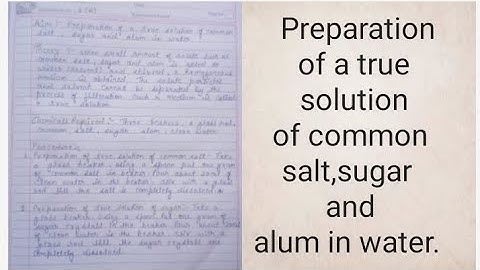 Aim :- Preparation of a true solution of common
salt, sugar and alum in water.
Theory :- When small amount of solute such as
common salt, sugar and alum is added to
water (solvent) and stirred, a homogeneous
medium is obtained. The solute particles
and solvent cannot be separated by the
process of filtration. Such a medium is called
a true solution.
Chemicals Required :- Three beakers, a glass rod,
common salt, sugar, alum, clean water
Procedure :-
1. Preparation of true solution of common salt - Take
a glass beaker. Using a spoon put one gram
of common salt in beaker. Pour about 50ml of
clean water in the beaker. Mix with a glass
rod till the salt is completely dissolved.
2. Preparation of true solution of sugar - Take a
glass beaker. Using a spoon put one gram of
sugar crystals in the beaker. Pour about 50ml
of clean water in the beaker. Mix with a
glass rod till the sugar crystals are
completely dissolved.
Preparation
of a true
solution
of common
salt,sugar
and
alum in water.